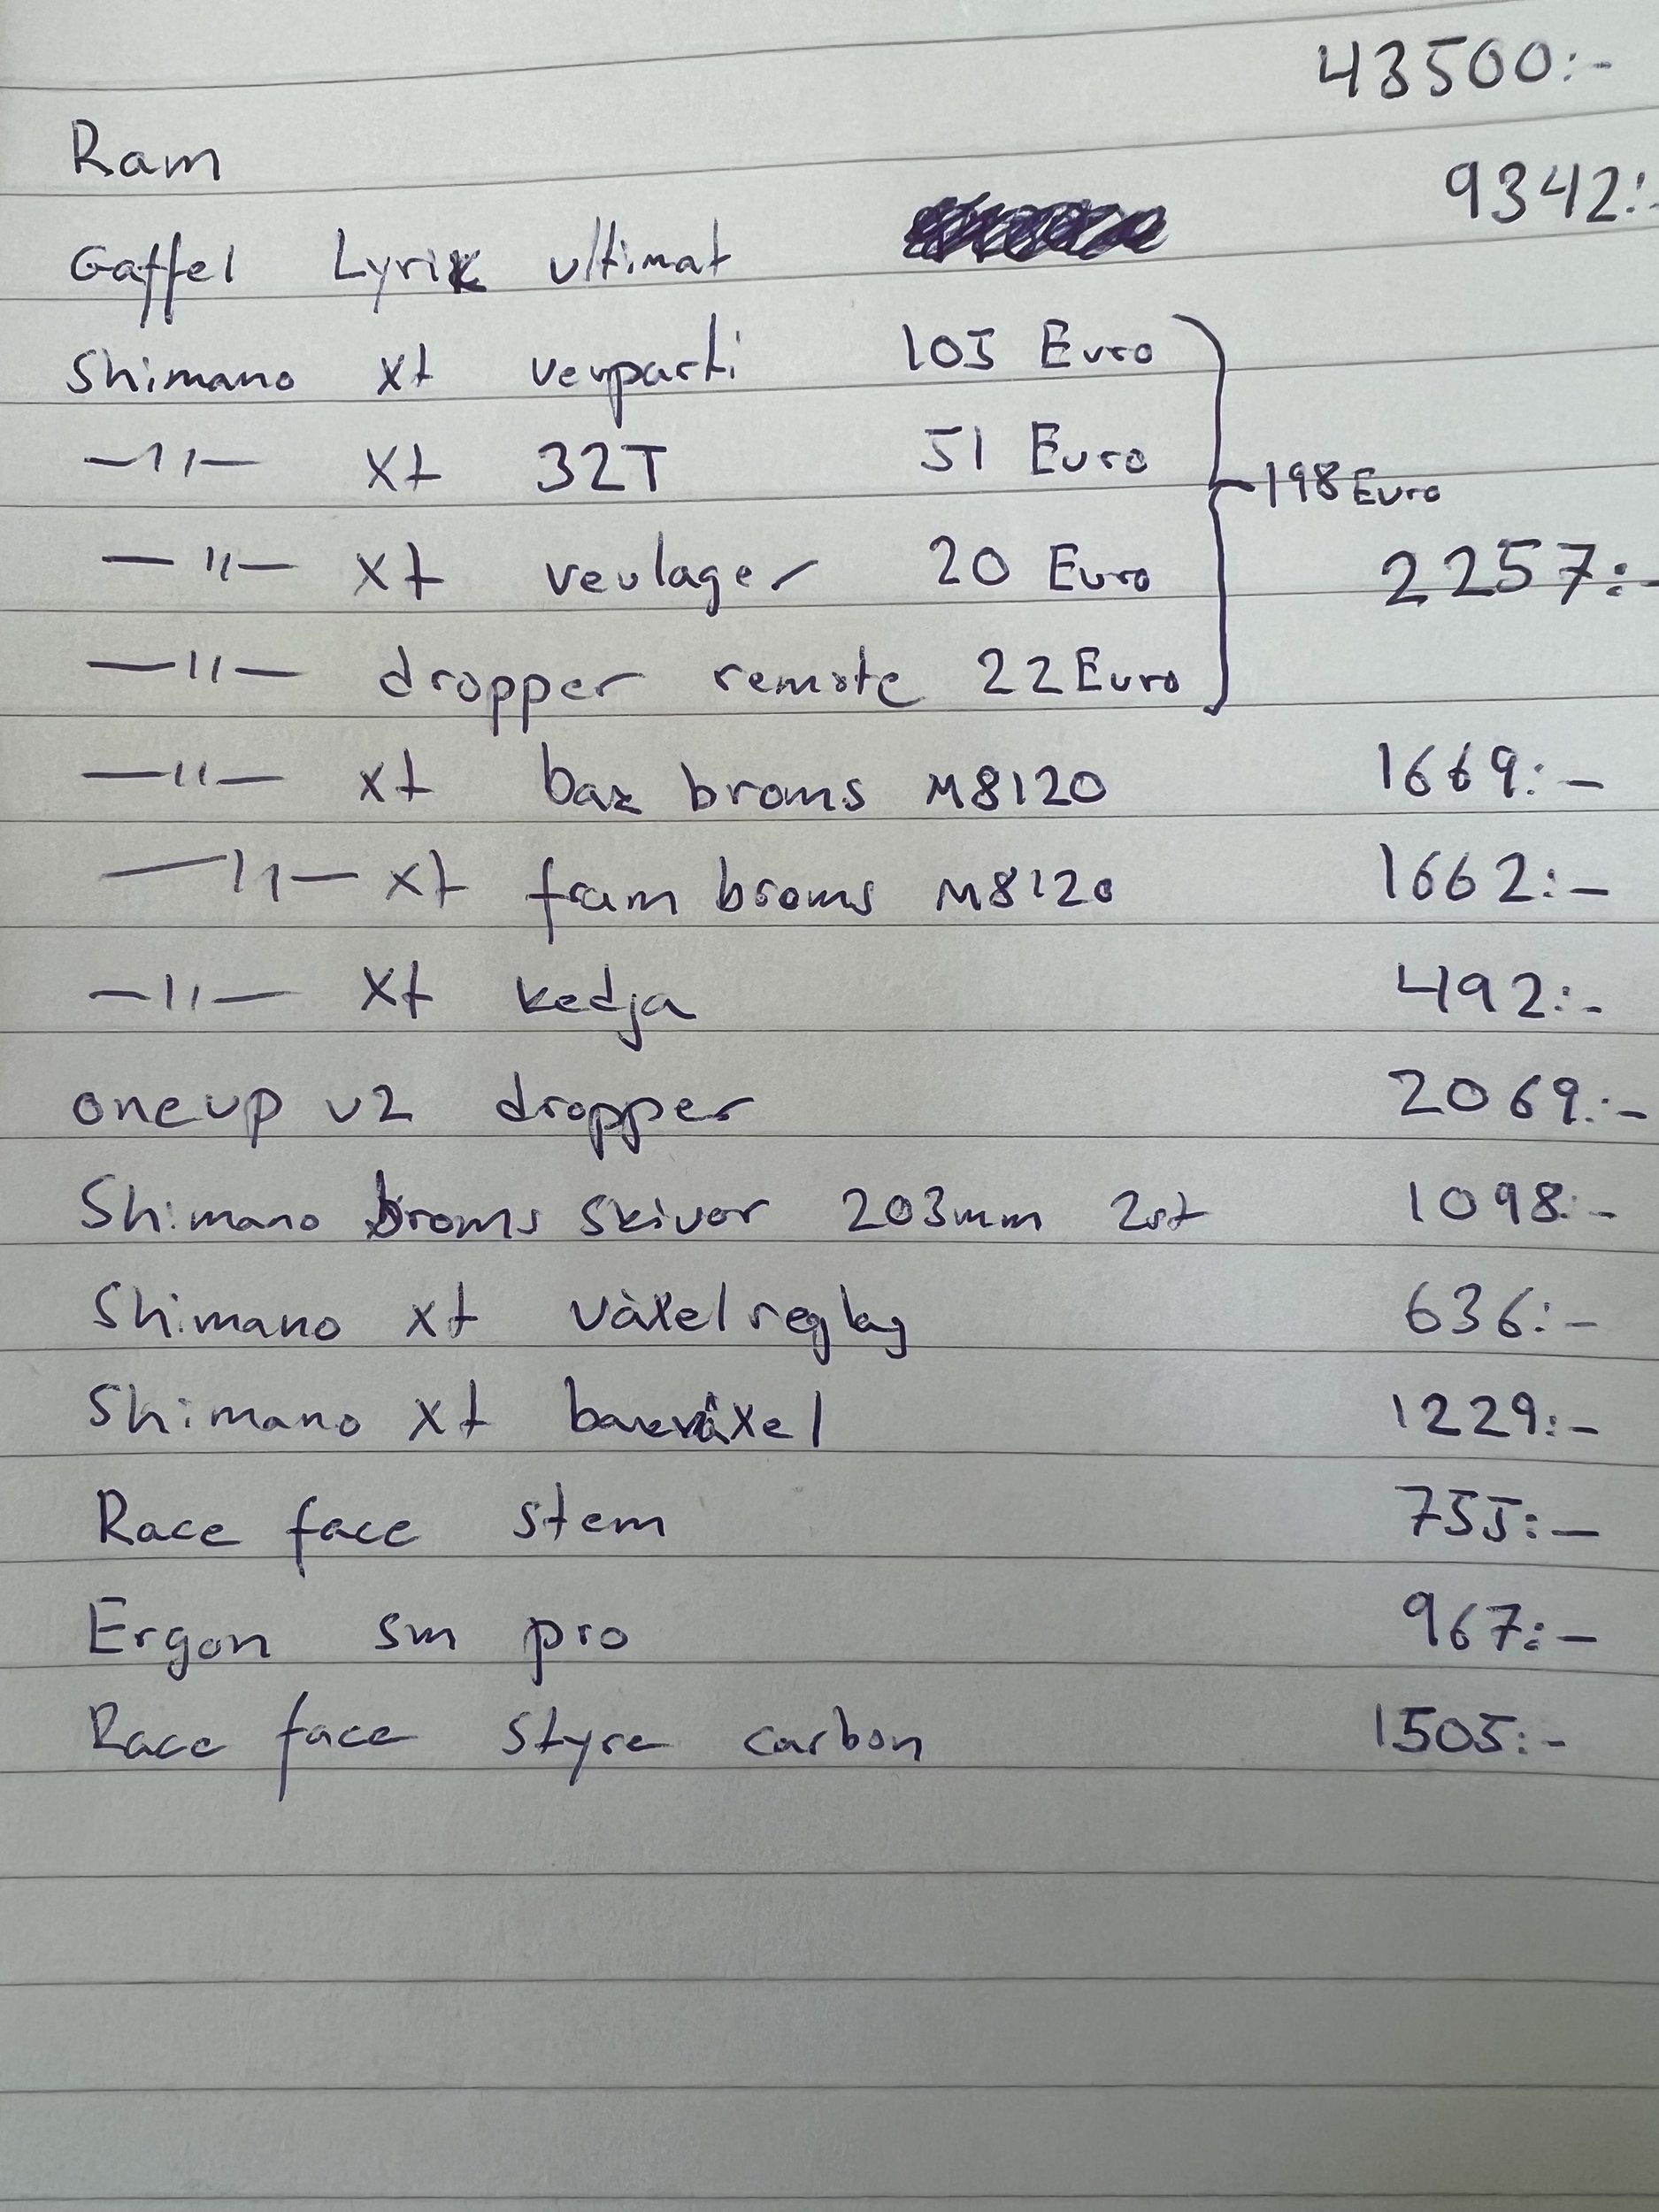 Ram 43500:-
Gaffel Lyrik ultimat 9342:-
Shimano xt vevparti 105 Euro
—11— xt 32T 51 Euro
198 Euro
—11— xt vevlager 20 Euro 2257:-
—11— dropper remote 22 Euro
—11— xt bak broms M8120 1669:-
—11— xt fram broms M8120 1662:-
—11— xt kedja 492:-
oneup v2 dropper 2069:-
Shimano broms skivor 203mm 2st 1098:-
Shimano xt växelreglag 636:-
Shimano xt bakväxel 1229:-
Race face stem 755:-
Ergon sm pro 967:-
Race face styre carbon 1505:-